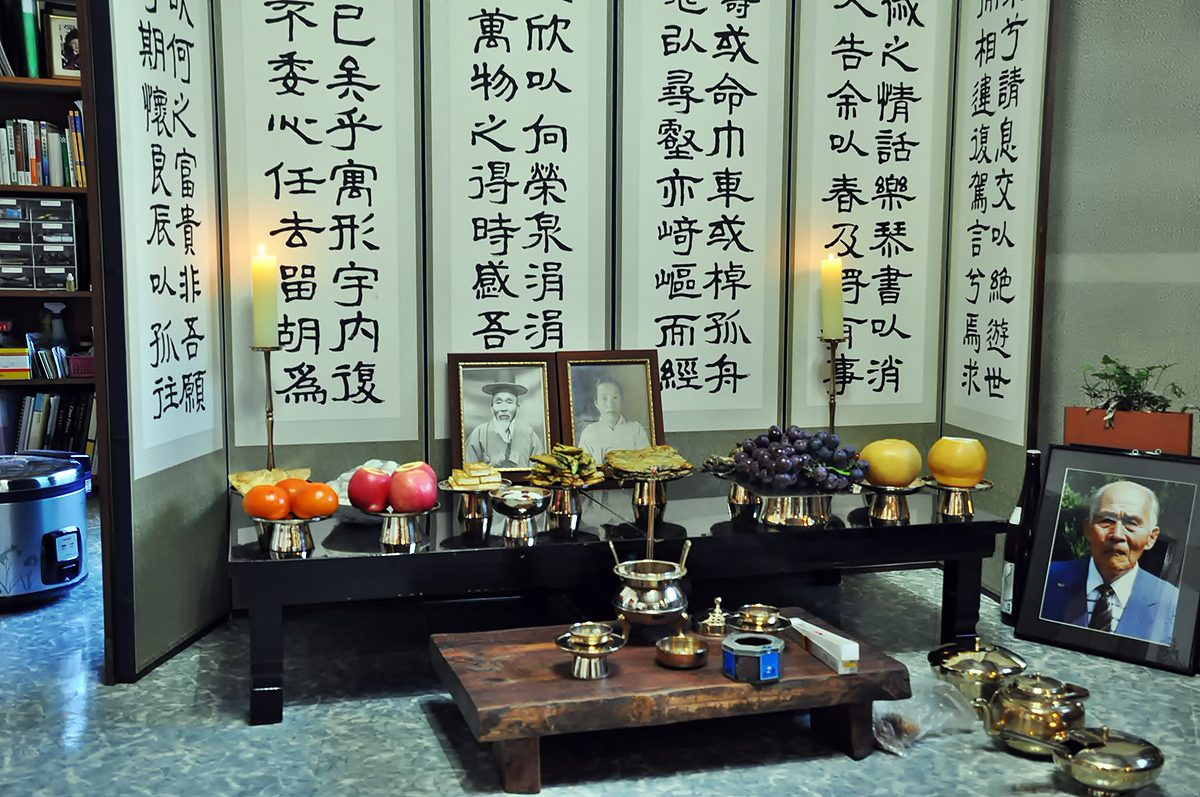 兮請息交以絕遊世
相違復駕言兮焉求
之情話樂琴書以消
告余以春及有事
或命巾車或棹孤舟
以尋壑亦崎嶇而經
欣以向榮泉涓涓
萬物之得時感吾
已矣乎寓形宇內復
不委心任去留胡爲
何之富貴非吾願
期懷良辰以孤往